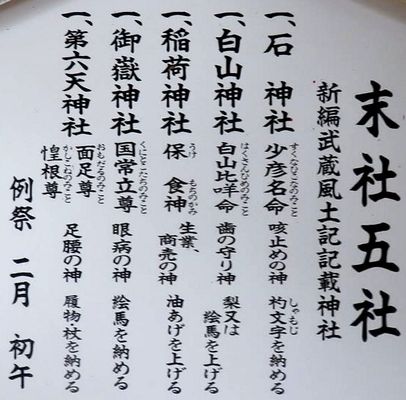 末社五社
新編武蔵風土記記載神社
一、石 神社 少彦名命 咳止めの神 杓文字を納める
すくなひこなのみこと しゃもじ
一、白山神社 白山比咩命 歯の守り神 梨又は絵馬を上げる
はくさんひめのみこと
一、稲荷神社 保食神 生業、商売の神 油あげを上げる
うけもちのかみ
一、御嶽神社 国常立尊 眼病の神 絵馬を納める
くにとこたちのみこと
一、第六天神社 面足尊 惶根尊 足腰の神 履物・杖を納める
おもだるのみこと かしこねのみこと
例祭 二月 初午